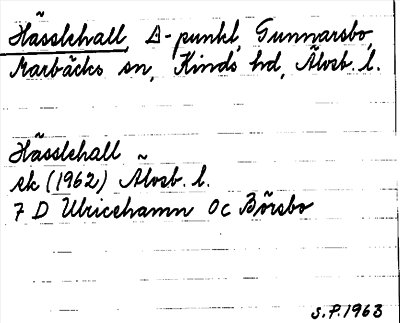 Hässlehall, Δ-punkt, Gunnarsbo,
Marbäcks sn, Kinds hd, Älvsb. l.
Hässlehall
ek (1962) Älvsb. l.
7 D Ulricehamn 0c Börsbo
S.P. 1963